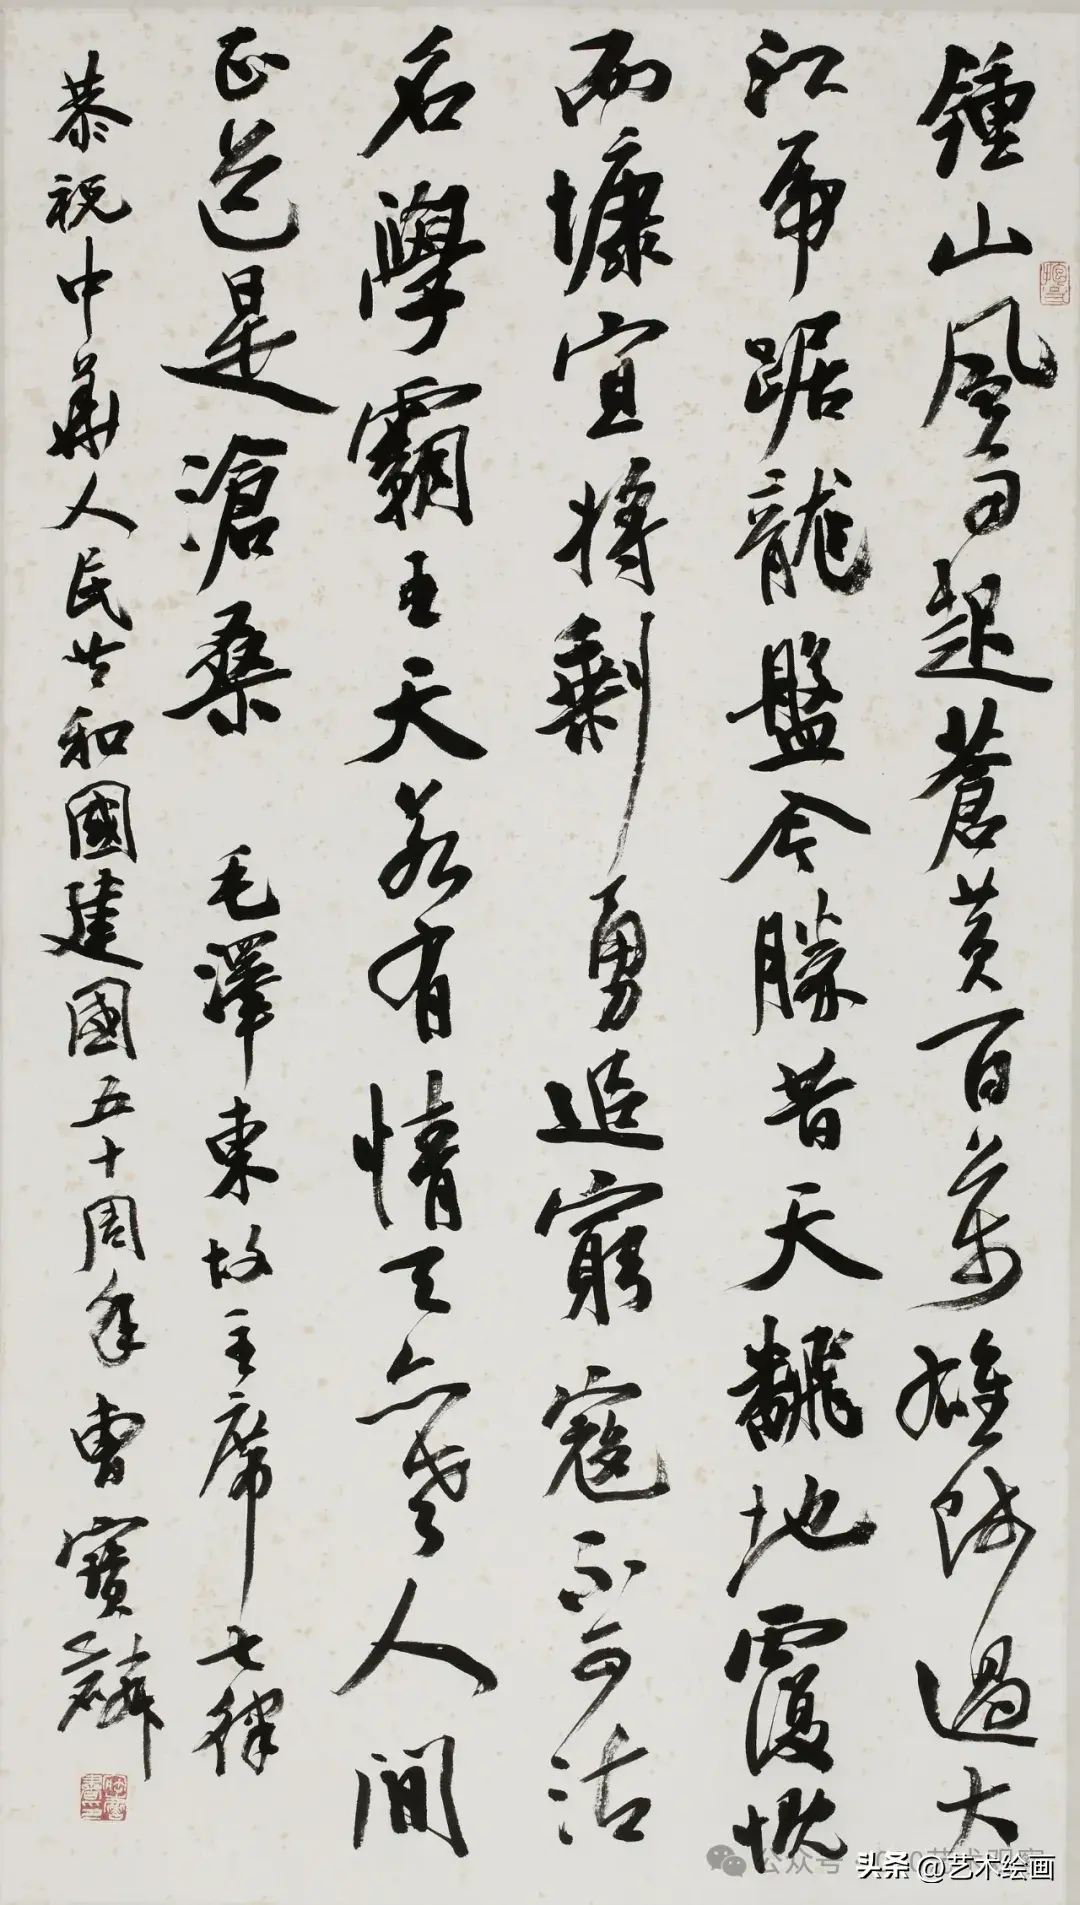 鍾山風雨起蒼黄百萬雄師過大
江虎踞龍盤今勝昔天飜地覆慨
而慷宜將剩勇追窮寇不可沽
名學霸王天若有情天亦老人間
正道是滄桑 毛澤東故主席七律
恭祝中華人民共和國建國五十周年 曹寶麟
公众号
头条 @艺术绘画